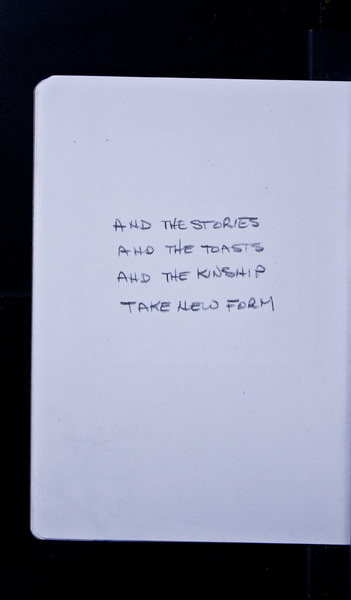 AND THE STORIES
AND THE TOASTS
AND THE KINSHIP
TAKE NEW FORM